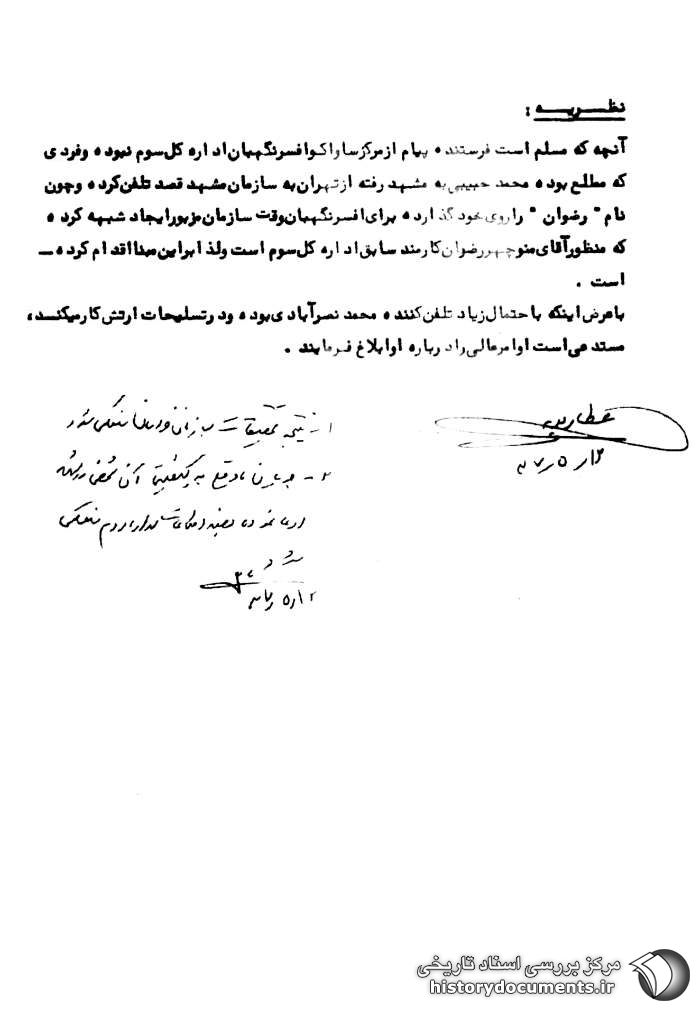 نظریه :
آنچه که مسلم است فرستنده پیام از مرکز ساواک و افسر نگهبان اداره کل سوم نبوده و فردی
که مطلع بوده محمد حبیبی به مشهد رفته از تهران به سازمان مشهد قصد تلفن کرده و چون
نام " رضوان " را روی خود گذارده برای افسر نگهبان وقت سازمان مزبور ایجاد شبهه کرده
که منظور آقای منوچهر رضوان کارمند سابق اداره کل سوم است و لذا بر این مبنا اقدام کرده –
است .
با عرض اینکه با حتمال زیاد تلفن کننده محمد نصرآبادی بوده و در تسلیحات ارتش کار میکنسد،
مستدعی است اوامر عالی را درباره او ابلاغ فرمایند .
عطارپور
۱- نتیجه تحقیقات
۲-
مرکز بررسی اسناد تاریخی
historydocuments.ir